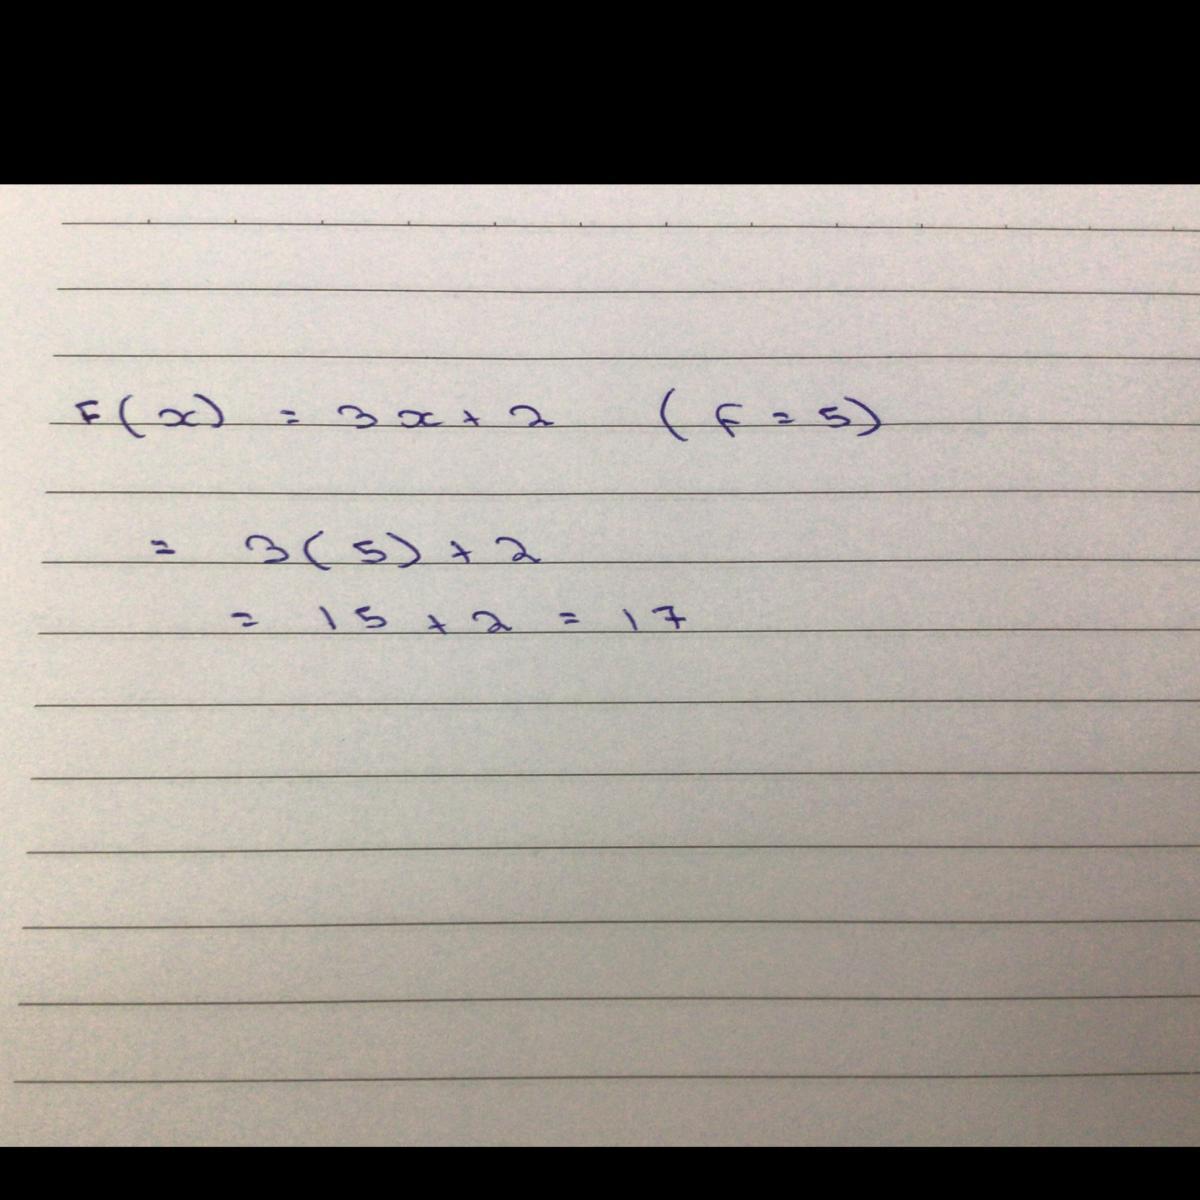 F(x) = 3x + 2 (F = 5)
= 3(5) + 2
= 15 + 2 = 17